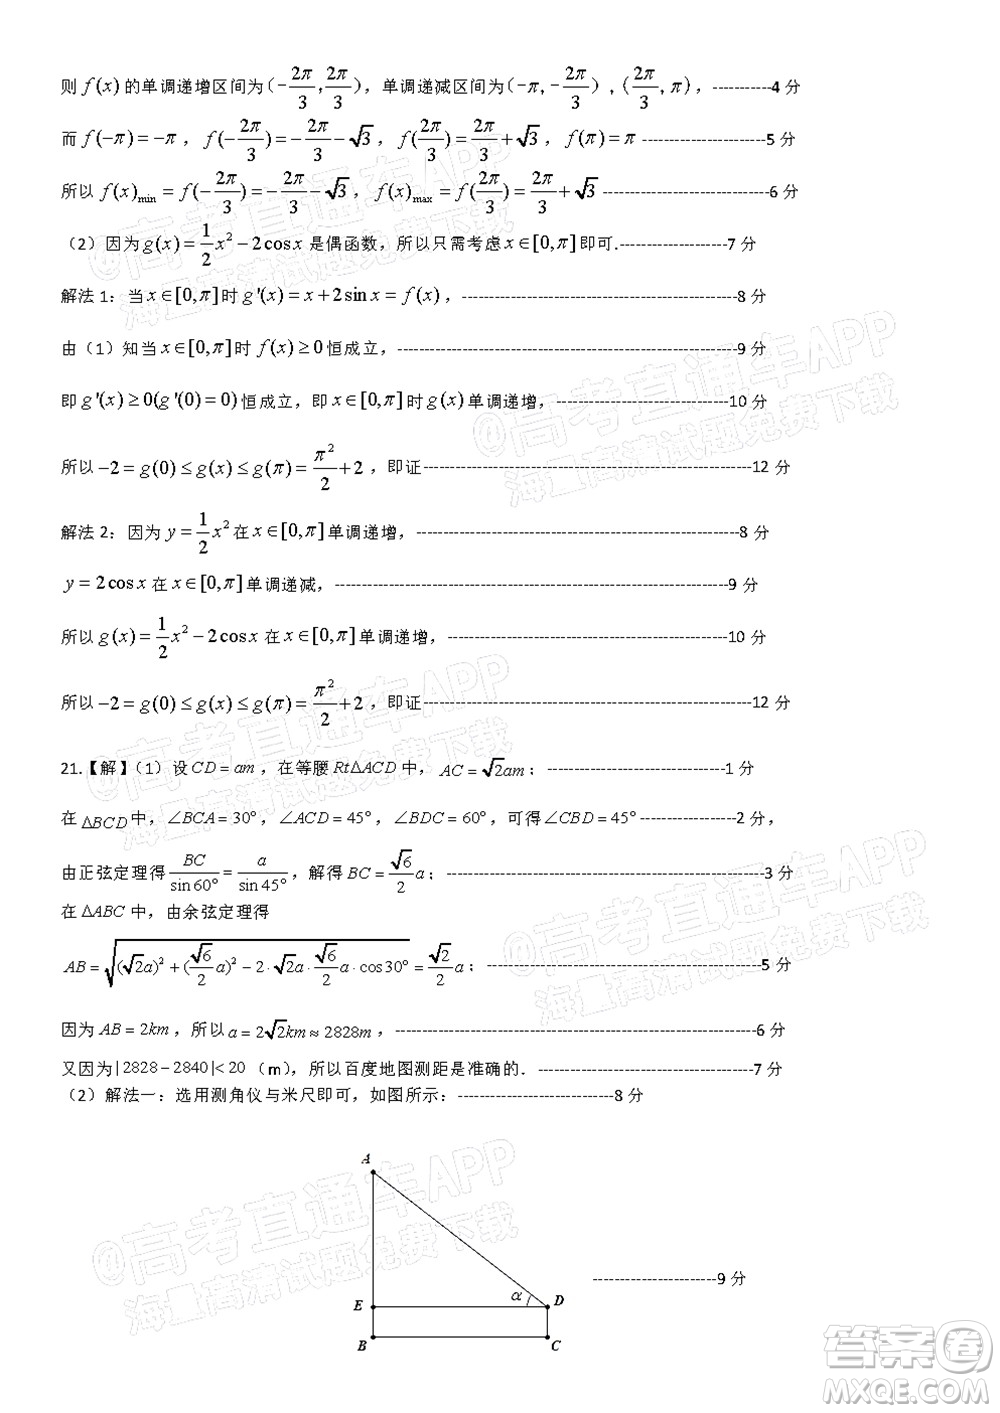 则 f(x) 的单调递增区间为 (-2π/3, 2π/3)，单调递减区间为 (-π, -2π/3)，(2π/3, π)，-----------4 分
而 f(-π) = -π，f(-2π/3) = -2π/3 - √3，f(2π/3) = 2π/3 + √3，f(π) = π -----------------------5 分
所以 f(x)min = f(-2π/3) = -2π/3 - √3，f(x)max = f(2π/3) = 2π/3 + √3 -------------------------------6 分
（2）因为 g(x) = 1/2 x² - 2cos x 是偶函数，所以只需考虑 x∈[0,π] 即可.--------------------7 分
解法 1：当 x∈[0,π] 时 g'(x) = x + 2sin x = f(x)，---------------------------------------------------8 分
由（1）知当 x∈[0,π] 时 f(x) ≥ 0 恒成立，---------------------------------------------------------------9 分
即 g'(x) ≥ 0(g'(0) = 0) 恒成立，即 x∈[0,π] 时 g(x) 单调递增，--------------------------------10 分
所以 -2 = g(0) ≤ g(x) ≤ g(π) = π²/2 + 2，即证-------------------------------------------------------------12 分
解法 2：因为 y = 1/2 x² 在 x∈[0,π] 单调递增，------------------------------------------------------------8 分
y = 2cos x 在 x∈[0,π] 单调递减，-------------------------------------------------------------------------9 分
所以 g(x) = 1/2 x² - 2cos x 在 x∈[0,π] 单调递增，----------------------------------------------------10 分
所以 -2 = g(0) ≤ g(x) ≤ g(π) = π²/2 + 2，即证-------------------------------------------------------------12 分
21.【解】（1）设 CD = am，在等腰 Rt△ACD 中，AC = √2am；---------------------------------1 分
在 △BCD 中，∠BCA = 30°，∠ACD = 45°，∠BDC = 60°，可得∠CBD = 45°------------------2 分，
由正弦定理得 BC/sin60° = a/sin45°，解得 BC = √6/2 a；-----------------------------------------------------------3 分
在 △ABC 中，由余弦定理得
AB = √((√2a)² + (√6/2 a)² - 2·√2a·√6/2 a·cos30°) = √2/2 a；---------------------------------------------------5 分
因为 AB = 2km，所以 a = 2√2km ≈ 2828m，-------------------------------------------------------------------6 分
又因为 |2828 - 2840| < 20（m），所以百度地图测距是准确的．----------------------------------------7 分
（2）解法一：选用测角仪与米尺即可，如图所示：-----------------------------8 分
A
E
α
D
B
C
-----------------------9 分
@高考直通车APP
海量高清试题免费下载
@高考直通车APP
海量高清试题免费下载
@高考直通车APP
海量高清试题免费下载
@高考直通车APP
海量高清试题免费下载
@高考直通车APP
海量高清试题免费下载
答案圈
MXQE.COM